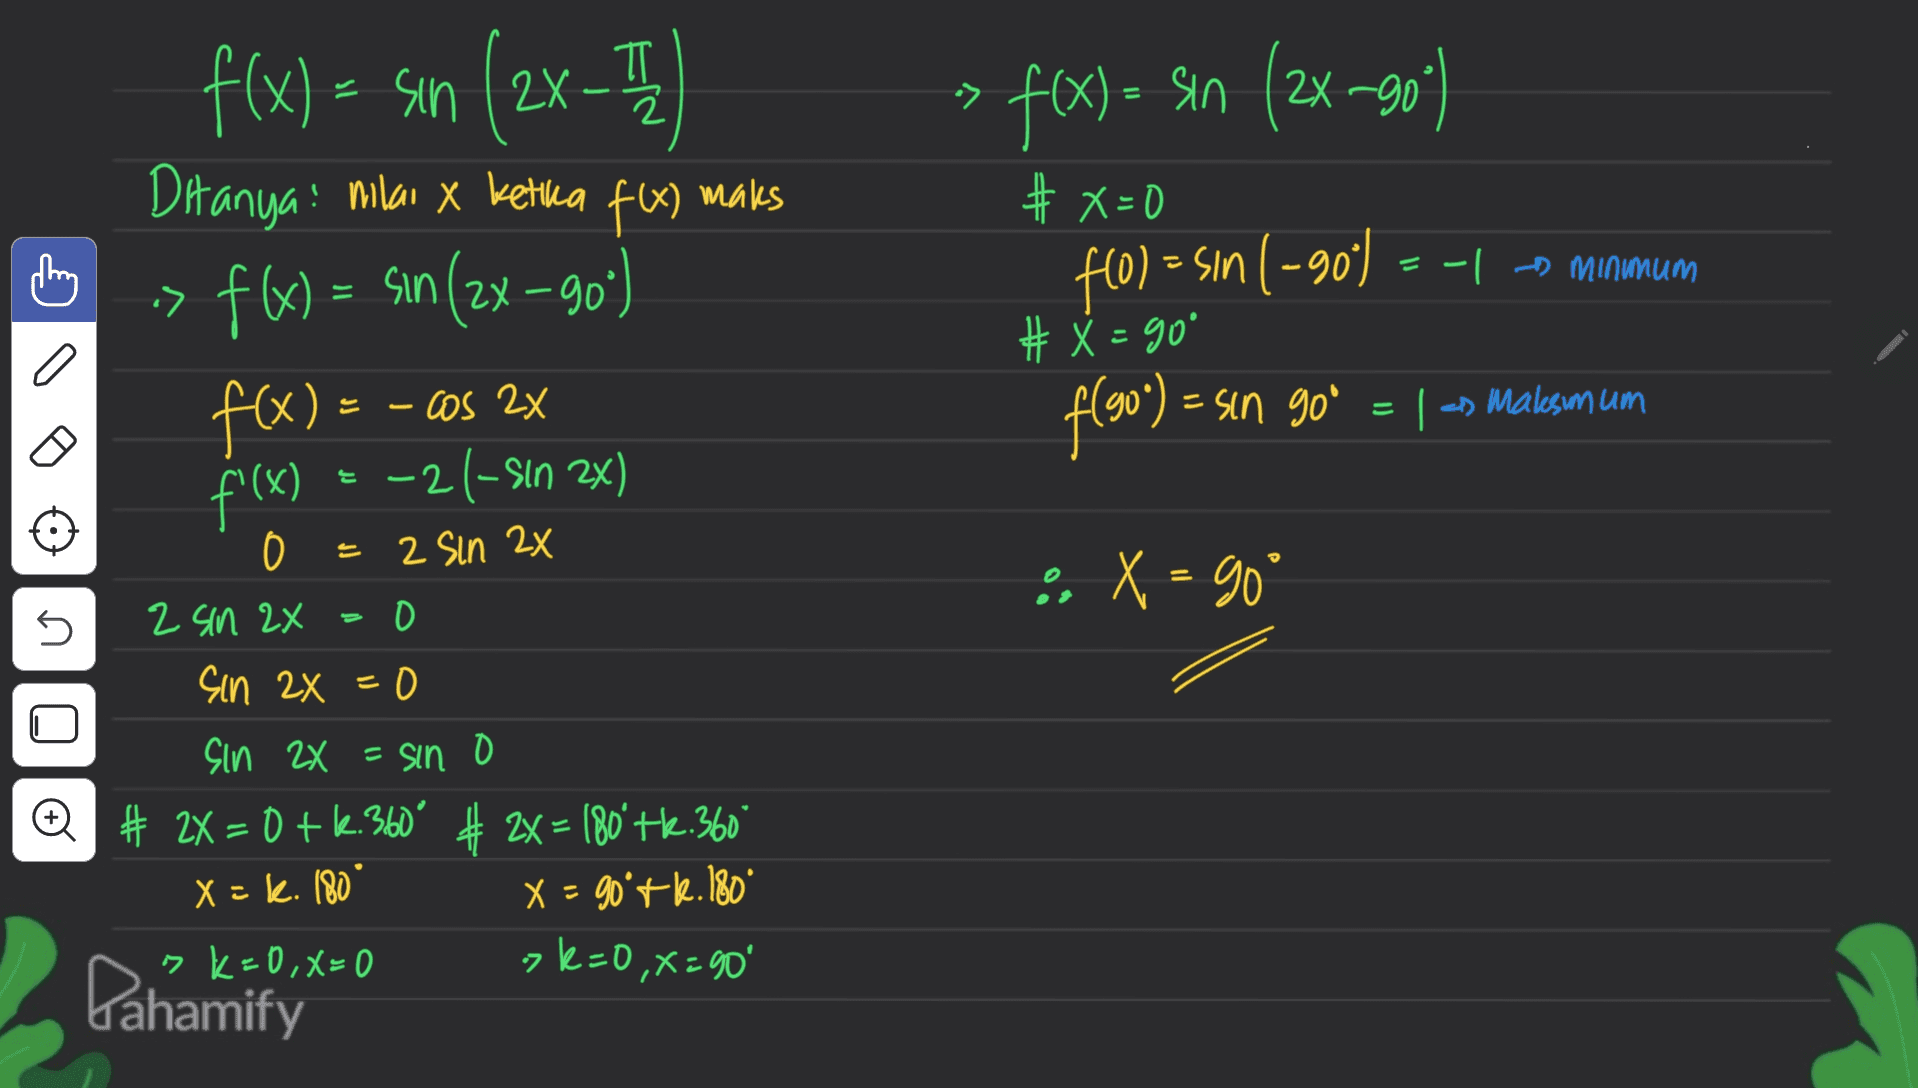 f(x) = sin (2x - π/2)
Ditanya: nilai x ketika f(x) maks
-> f(x) = sin (2x - 90°)
f(x) = - cos 2x
f'(x) = -2 (-sin 2x)
0 = 2 sin 2x
2 sin 2x = 0
sin 2x = 0
sin 2x = sin 0
# 2x = 0 + k.360° # 2x = 180° + k.360°
x = k. 180° x = 90° + k.180°
> k=0, x=0 > k=0, x=90°
-> f(x) = sin (2x - 90°)
# x = 0
f(0) = sin (-90°) = -1 → minimum
# x = 90°
f(90°) = sin 90° = 1 → Maksimum
∴ x = 90°
Pahamify